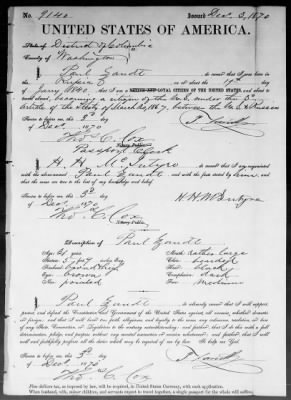 No. 9140 Issued Dec. 3, 1870
UNITED STATES OF AMERICA.
State of District of Columbia
County of Washington
I, Paul Zandt, do swear that I was born in
Russia on or about the 9th
of Jany 1840; that I am a
citizen of the U.S. under the
Article of the Treaty of March 1867, between the U.S. & Russia
Sworn to before me this 3d
day of Dec. 1870
Thos. C. Cox
Notary Public.
Passport Clerk
I, H. H. McIntyre, do swear that I am acquainted
with the above-named Paul Zandt, and with the facts stated by him, and
that the same are true to the best of my knowledge and belief.
Sworn to before me this 3d
day of Dec. 1870
H. H. McIntyre
Thos. C. Cox
Notary Public.
Description of Paul Zandt
Age:
Mouth: rather large
Stature: 5
Chin: bearded
Forehead:
Hair: black
Eyes: brown
Complexion: dark
Nose: pointed
Face: medium
I, Paul Zandt, do solemnly swear that I will support,
protect, and defend the Constitution and Government of the United States against all enemies, whether domestic
or foreign; and that I will bear true faith, allegiance, and loyalty to the same, any ordinance, resolution, or law
of any State Convention or Legislature to the contrary notwithstanding; and further, that I do this with a full
determination, pledge, and purpose, without any mental reservation or evasion whatsoever; and further, that I will
well and faithfully perform all the duties which may be required of me by law. So help me God.
Sworn to before me this 3d
day of Dec. 1870
Thos. C. Cox
Notary Public.
Five dollars tax, as required by law, will be required, in United States Currency, with each application.
When husband, wife, minor children, and servants expect to travel together, a single passport for the whole will suffice.